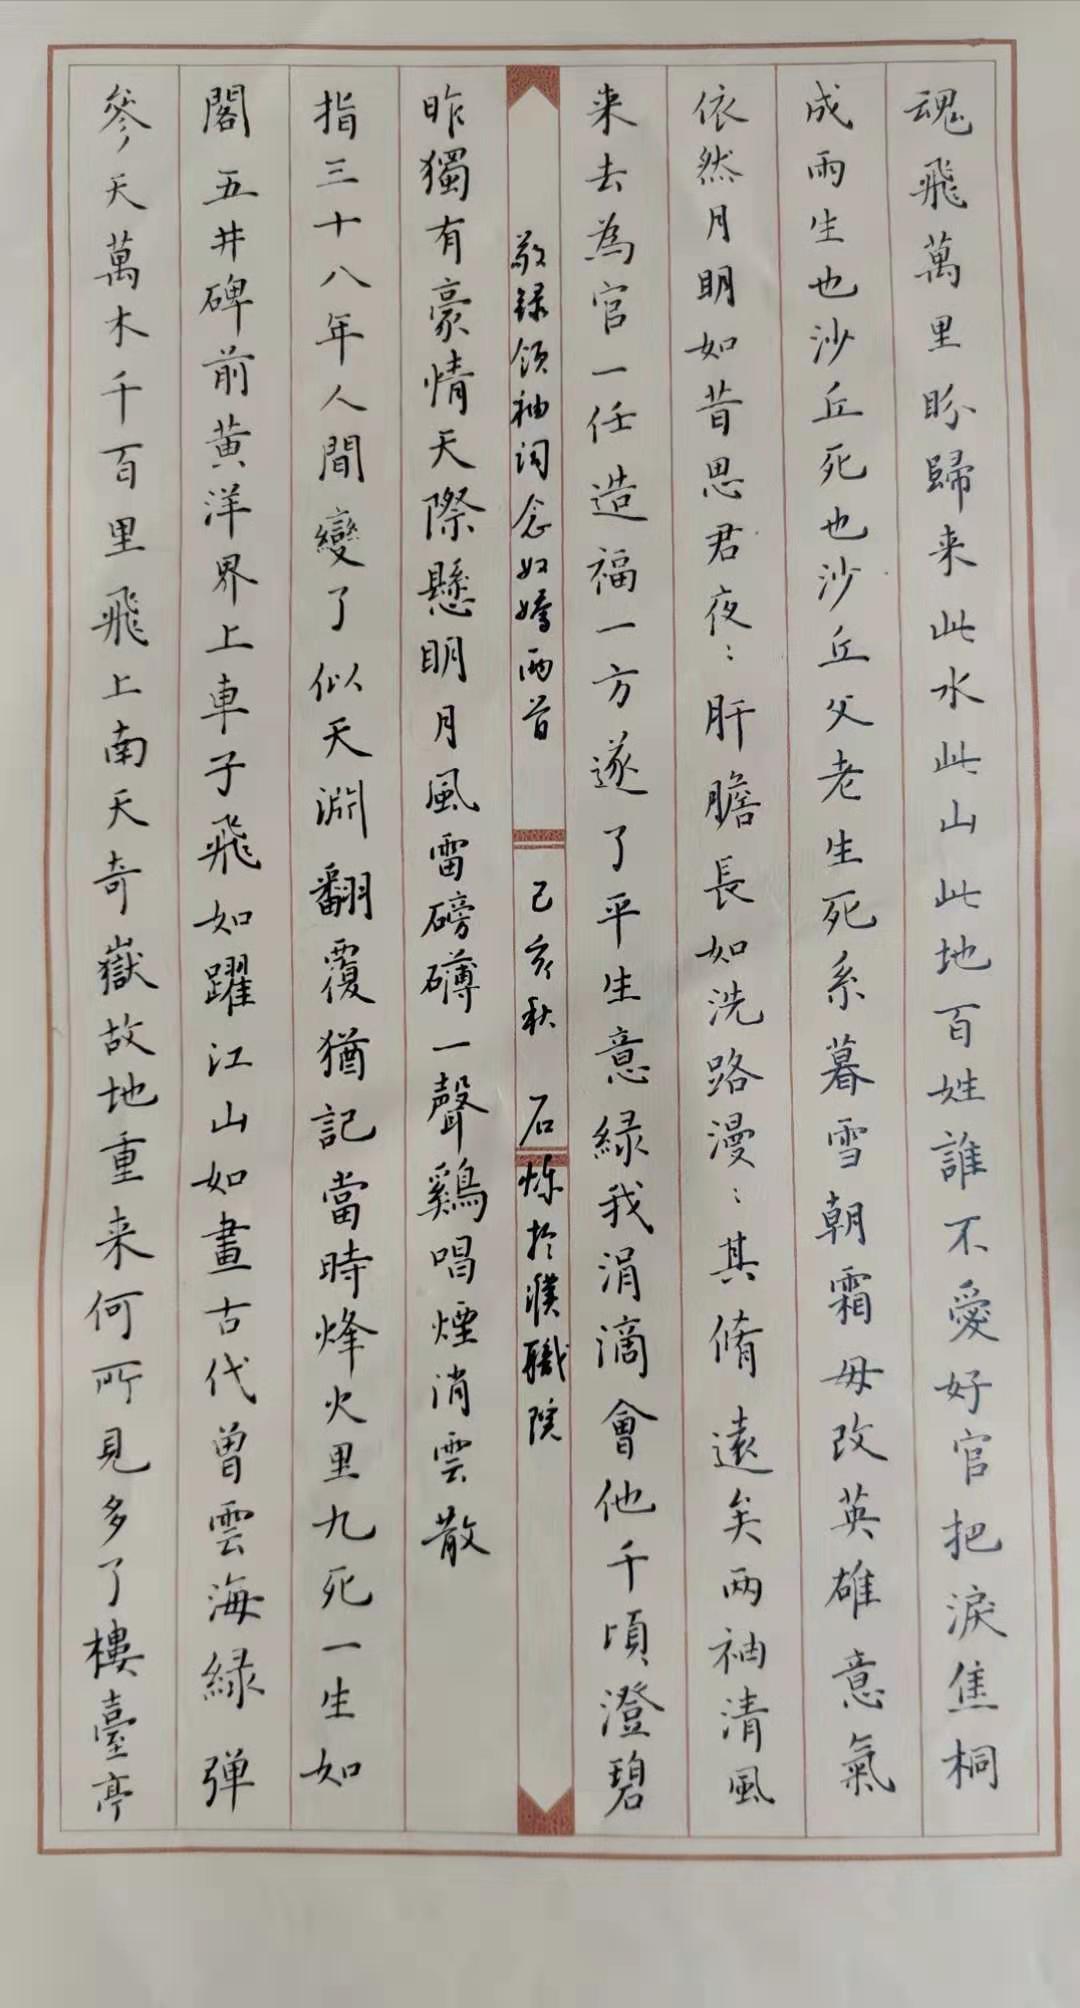 魂飛萬里盼歸来此水此山此地百姓誰不愛好官把淚焦桐
成雨生也沙丘死也沙丘父老生死系暮雪朝霜毋改英雄意氣
依然月明如昔思君夜：肝膽長如洗路漫：其脩遠矣兩袖清風
来去為官一任造福一方遂了平生意緑我涓滴會他千頃澄碧
參天萬木千百里飛上南天奇嶽故地重来何所見多了樓臺亭
閣五井碑前黄洋界上車子飛如躍江山如畫古代曾雲海緑弹
指三十八年人間變了似天淵翻覆猶記當時烽火里九死一生如
昨獨有豪情天際懸明月風雷磅礴一聲鷄唱煙消雲散
敬録領袖詞念奴嬌兩首 己亥秋 石烁於濮職院